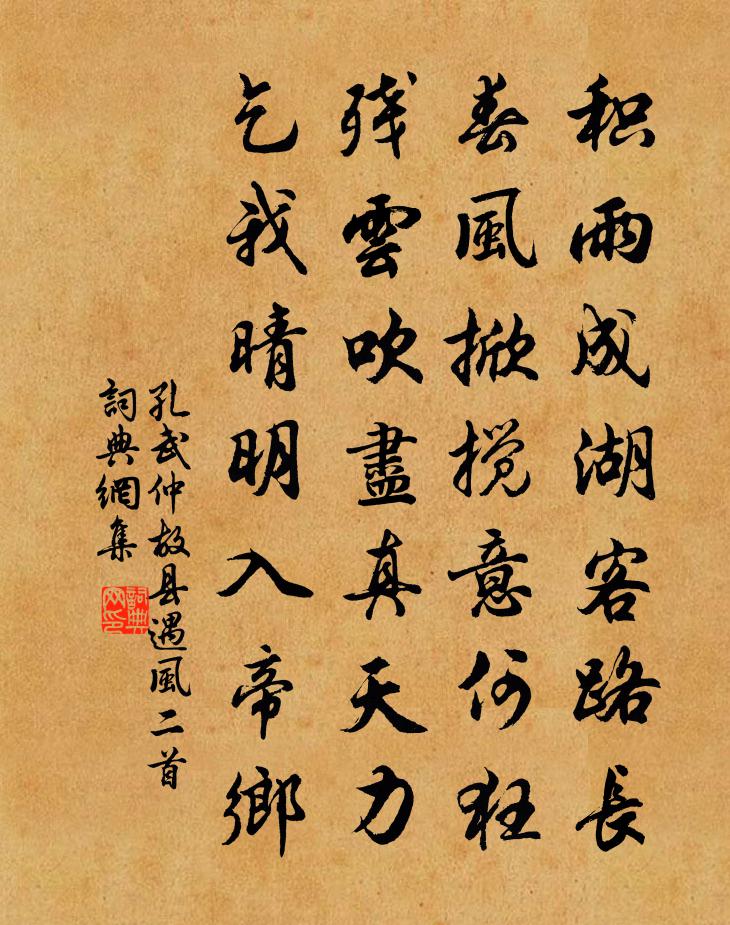 积雨成湖客路長
春風掀搅意何狂
残雲吹盡真天力
乞我晴明入帝鄉
孔武仲故县遇風二首
詞典網集
詞典网印